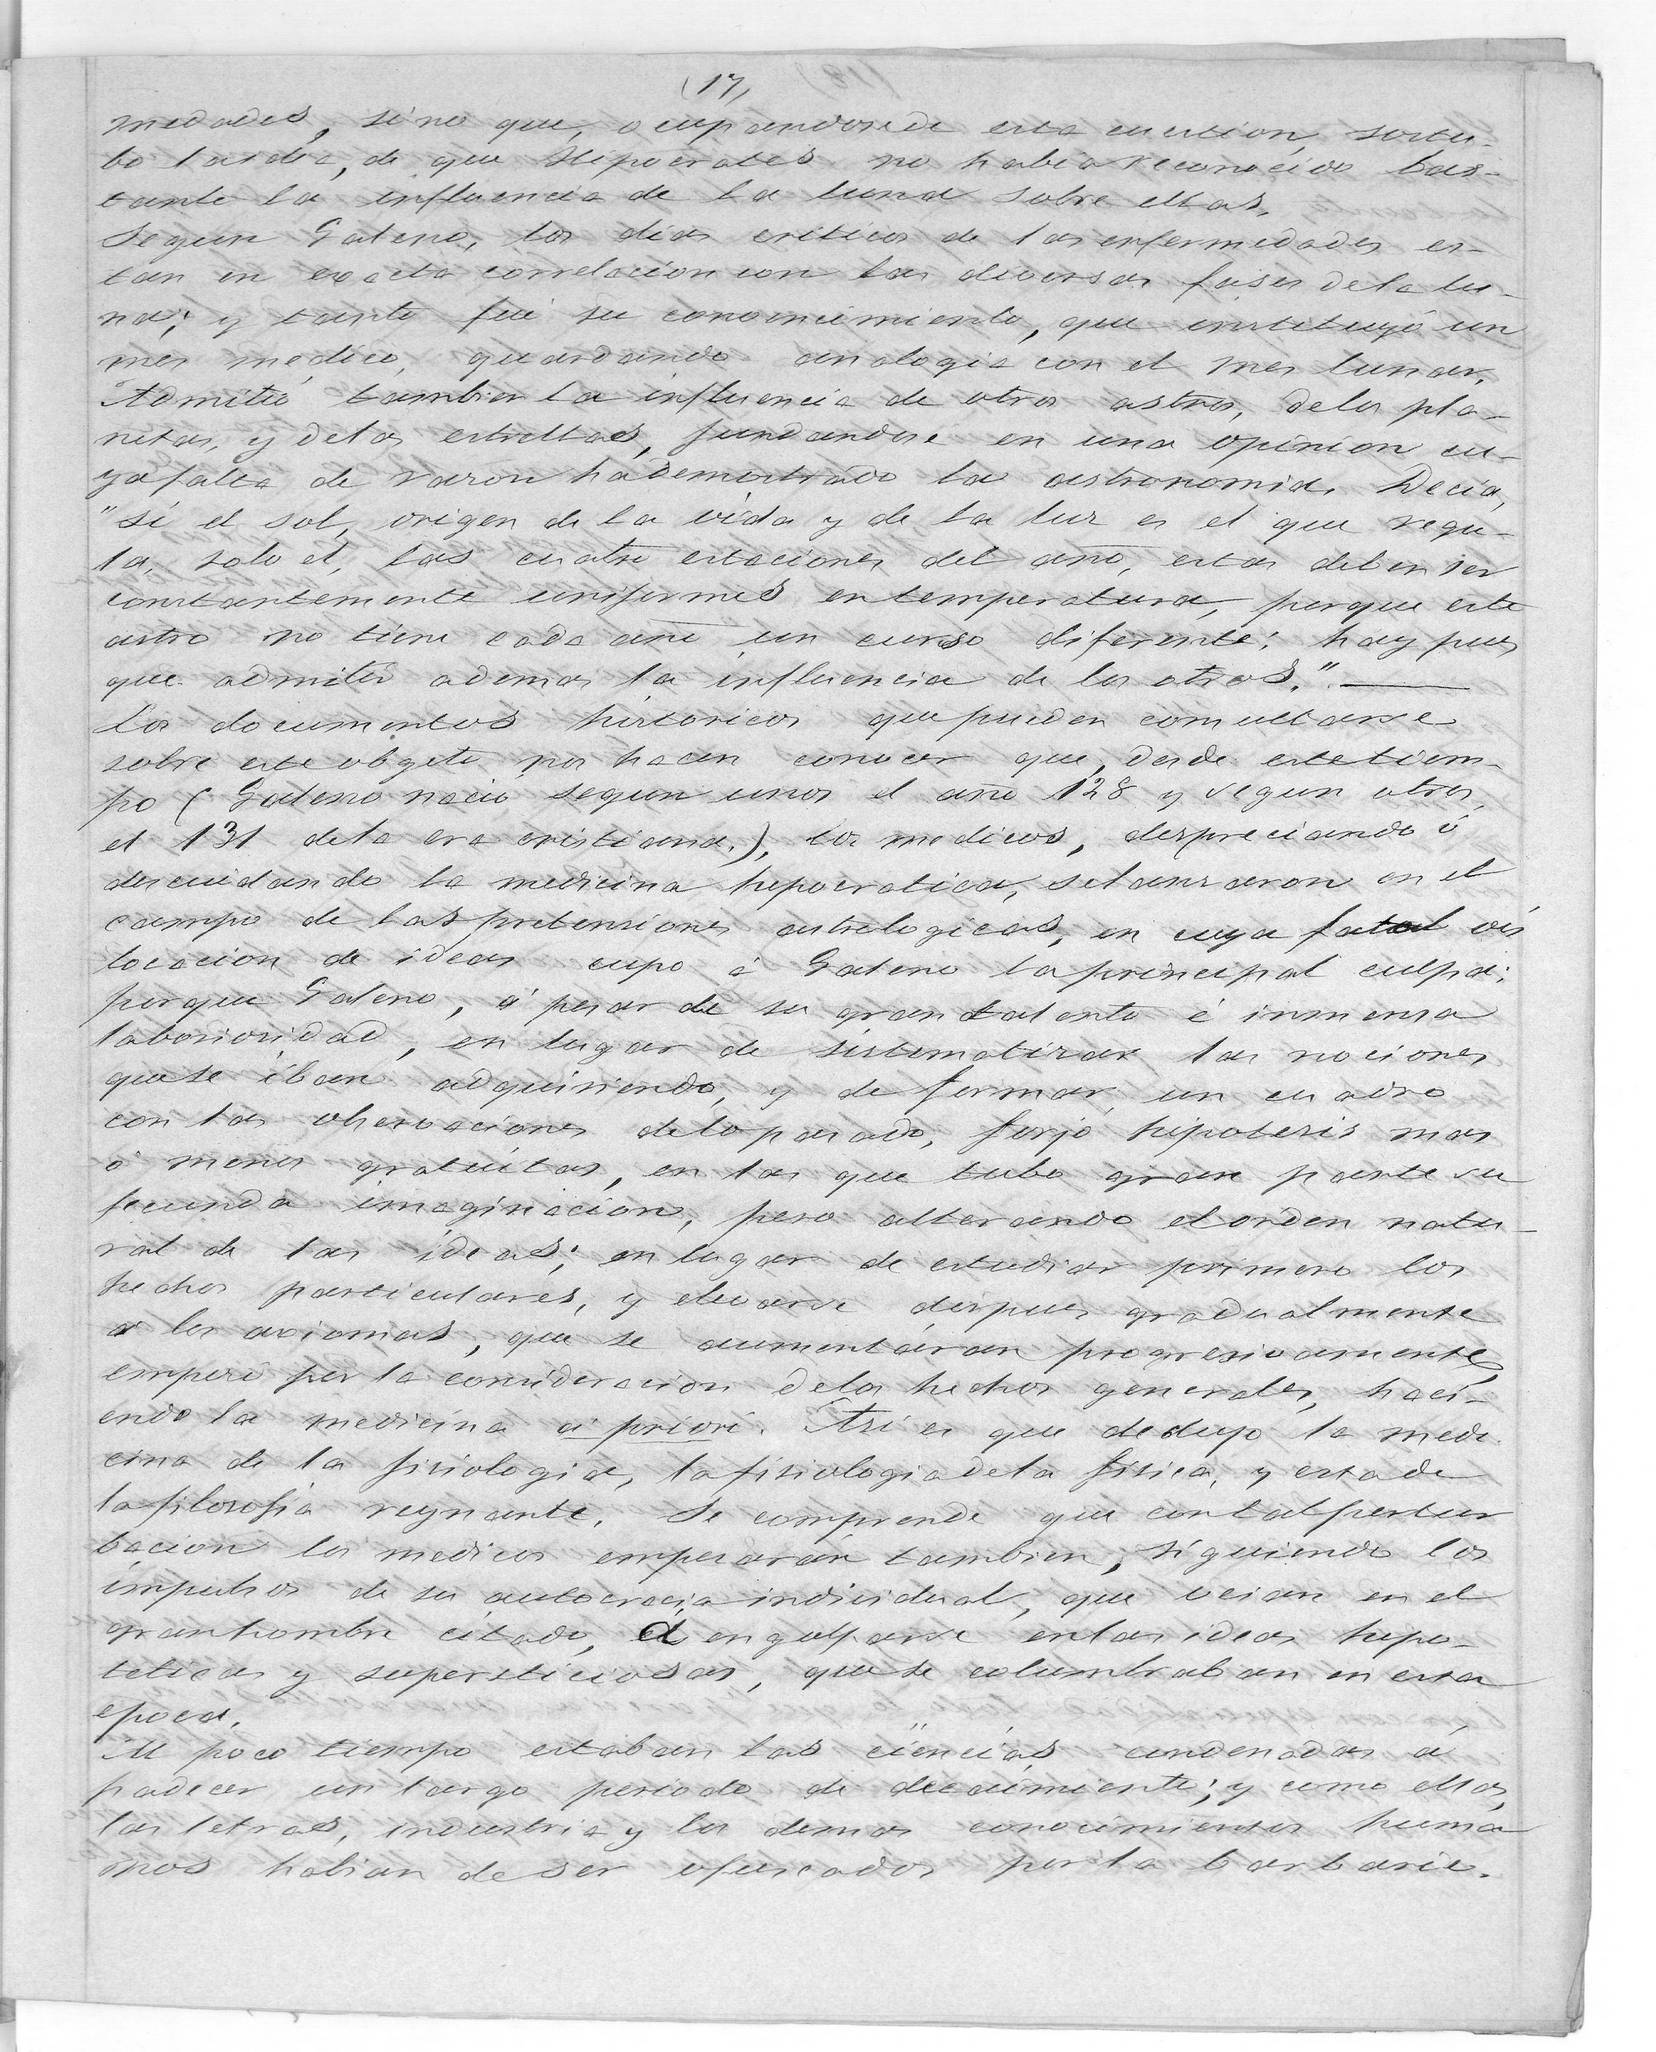 (17)
medades, sino que, ocupandose de esta cuestion, sostu-
bo la idea, de que Hipocrates no habia reconocido bas-
tante la influencia de la luna sobre ellas.
Segun Galeno, los dias criticos de las enfermedades es-
tan en exacta correlacion con las diversas fases de la lu-
na; y tanto fué su convencimiento, que instituyó un
mes medico, guardando analogia con el mes lunar.
Admitió tambien la influencia de otros astros, de los pla-
netas, y de las estrellas, fundandose en una opinion cu-
ya falta de razon ha demostrado la astronomia. Decia,
"si el sol, origen de la vida y de la luz es el que regu-
la, solo el, las cuatro estaciones del año, estas deben ser
constantemente uniformes en temperatura, porque este
astro no tiene cada año un curso diferente: hay pues
que admitir ademas la influencia de los otros."
Los documentos historicos que pueden consultarse
sobre este obgeto nos hacen conocer que, desde este tiem-
po (Galeno nació segun unos el año 128 y segun otros,
el 131 de la era cristiana.), los medicos, despreciando ó
descuidando la medicina hipocratica, se lanzaron en el
campo de las pretensiones astrologicas, en cuya fatal dis
locacion de ideas cupo á Galeno la principal culpa:
porque Galeno, á pesar de su gran talento é inmensa
laboriosidad, en lugar de sistematizar las nociones
que se iban adquiriendo, y de formar un cuadro
con las observaciones de lo pasado, forjó hipotesis mas
ó menos gratuitas, en las que tubo gran parte su
fecunda imaginacion, pero alterando el orden natu-
ral de las ideas; en lugar de estudiar primero los
hechos particulares, y elevarse despues gradualmente
a los axiomas, que se aumentáran progresivamente,
empezó por la consideracion de los hechos generales, haci-
endo la medicina á priori. Asi es que dedujo la medi
cina de la fisiologia, la fisiologia de la fisica, y esta de
la filosofia reynante. Se comprende que con tal pertur
bacion los medicos empezarán tambien, siguiendo los
impulsos de su autocracia individual, que veian en el
gran hombre citado, á engolfarse en las ideas hipo-
teticas y supersticiosas, que se columbraban en esta
epoca.
Al poco tiempo estaban las ciencias condenadas á
padecer un largo periodo de decaimiento; y como ellas,
las letras, industria y los demas conocimientos huma
nos habian de ser ofuscados por la barbarie.